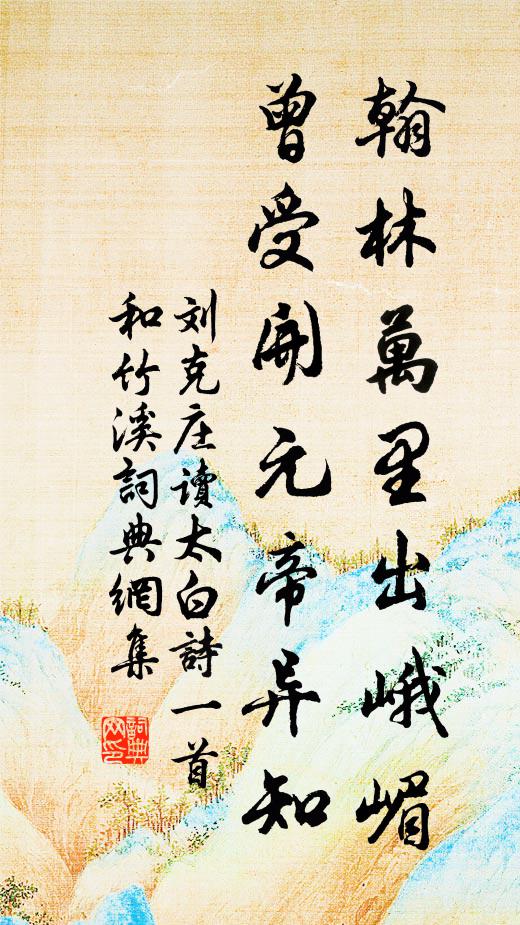 翰林萬里出峨嵋
曾受開元帝异知
刘克庄读太白詩一首
和竹溪詞典網集
詞典
网印